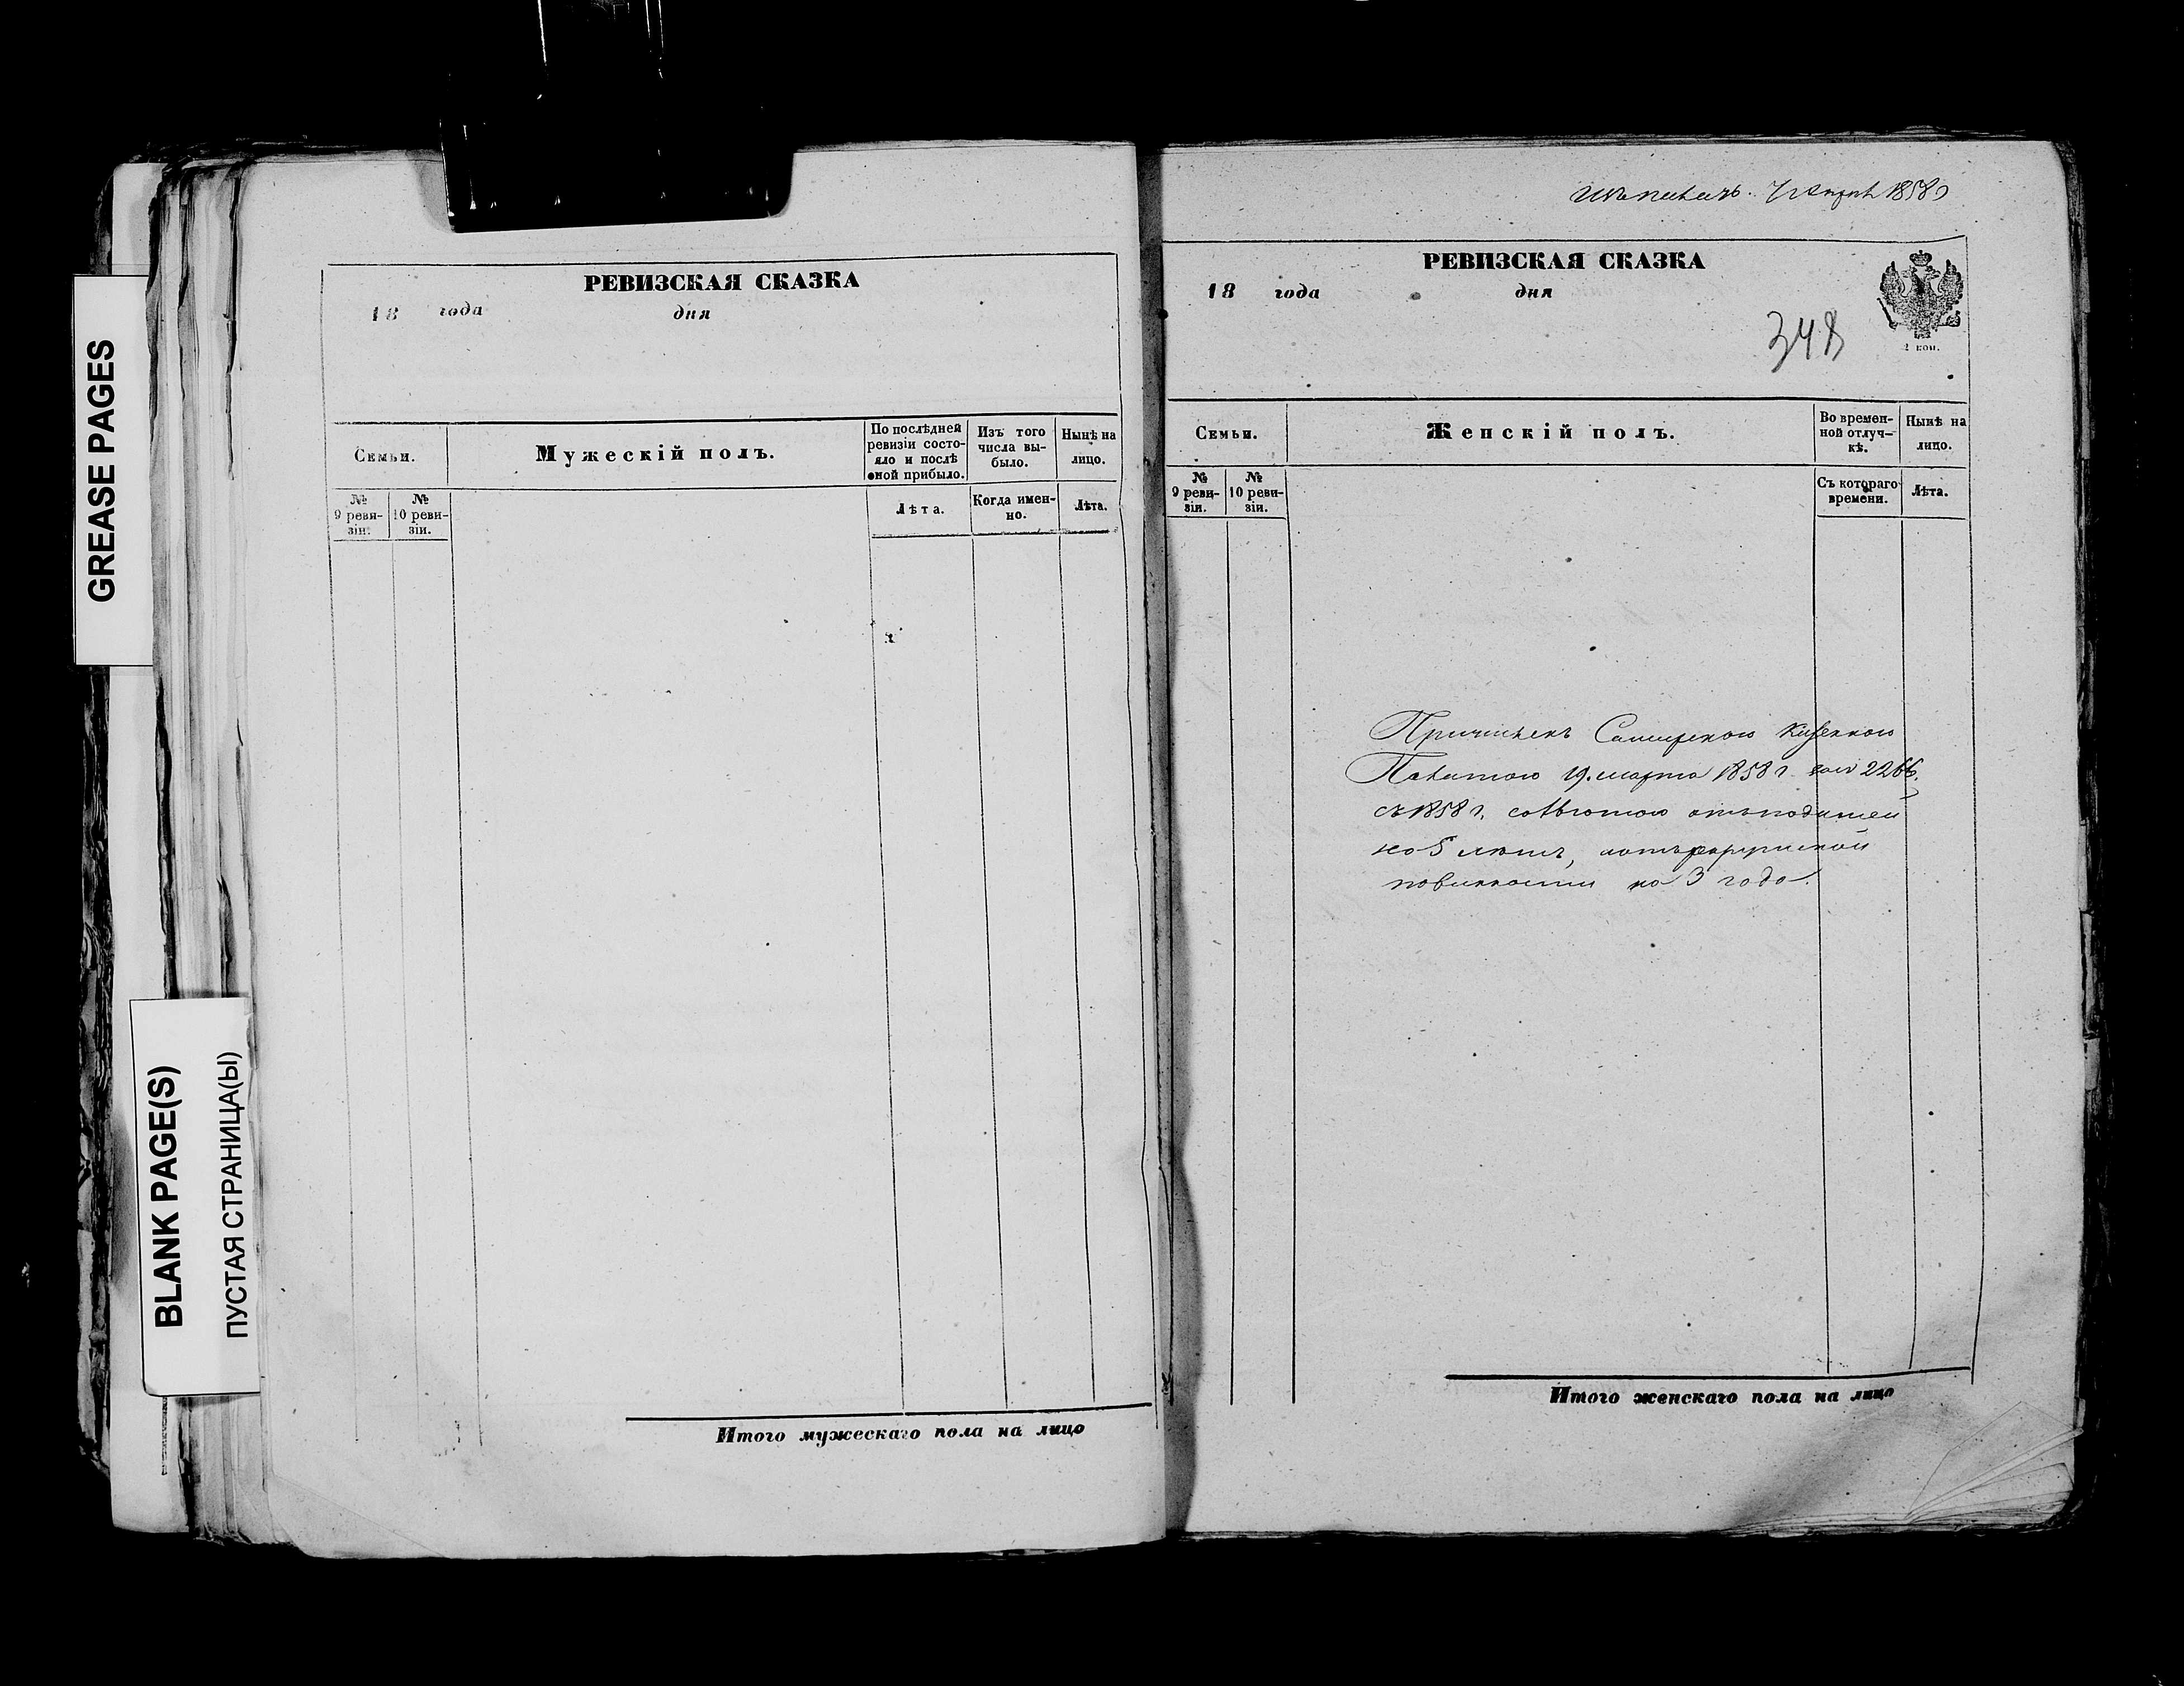 GREASE PAGES
BLANK PAGE(S)
ПУСТАЯ СТРАНИЦА(Ы)
РЕВИЗСКАЯ СКАЗКА
18 года дня
Семьи.
Мужескій полъ.
По послѣдней ревизіи состо-
яло и послѣ
оной прибыло.
Изъ того
числа вы-
было.
Нынѣ на
лицо.
№
9 реви-
зіи.
№
10 реви-
зіи.
Лѣта.
Когда имен-
но.
Лѣта.
Итого мужескаго пола на лицо
1858
РЕВИЗСКАЯ СКАЗКА
18 года дня
348
2 коп.
Семьи.
Женскій полъ.
Во времен-
ной отлуч-
кѣ.
Нынѣ на
лицо.
№
9 реви-
зіи.
№
10 реви-
зіи.
Съ котораго
времени.
Лѣта.
Причисленъ Самарскою Казенною
Палатою 19 марта 1858 г. 2266
съ 1858 г. со льготою отъ податей
на 5 лѣтъ, а отъ рекрутской
повинности на 3 года.
Итого женскаго пола на лицо